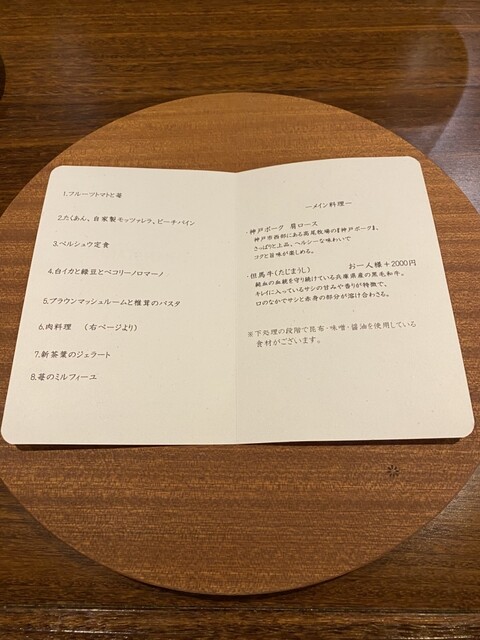 1.フルーツトマトと苺
2.たくあん、自家製モッツァレラ、ピーチパイン
3.ペルシュウ定食
4.白イカと緑豆とペコリーノロマーノ
5.ブラウンマッシュルームと椎茸のパスタ
6.肉料理 (右ページより)
7.新茶葉のジェラート
8.苺のミルフィーユ
ーメイン料理ー
・神戸ポーク 肩ロース
神戸市西部にある高尾牧場の『神戸ポーク』。
さっぱりと上品、ヘルシーな味わいで
コクと旨味が楽しめる。
・但馬牛(たじまうし) お一人様+2000円
純血の血統を守り続けている兵庫県産の黒毛和牛。
キレイに入っているサシの甘みや香りが特徴で。
口のなかでサシと赤身の部分が溶け合わさる。
※下処理の段階で昆布・味噌・醤油を使用している
食材がございます。